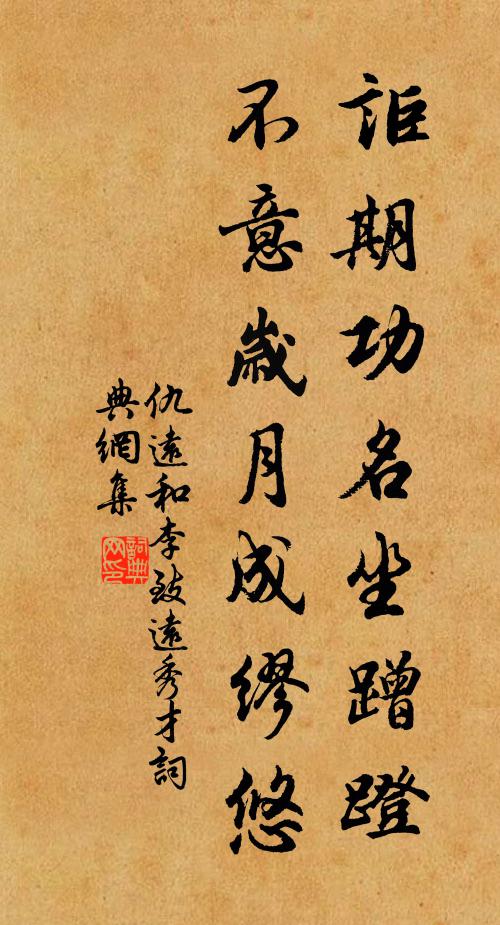 詎期功名坐蹭蹬
不意歲月成繆悠
仇遠和李致遠秀才詞
典網集
詞典
网印